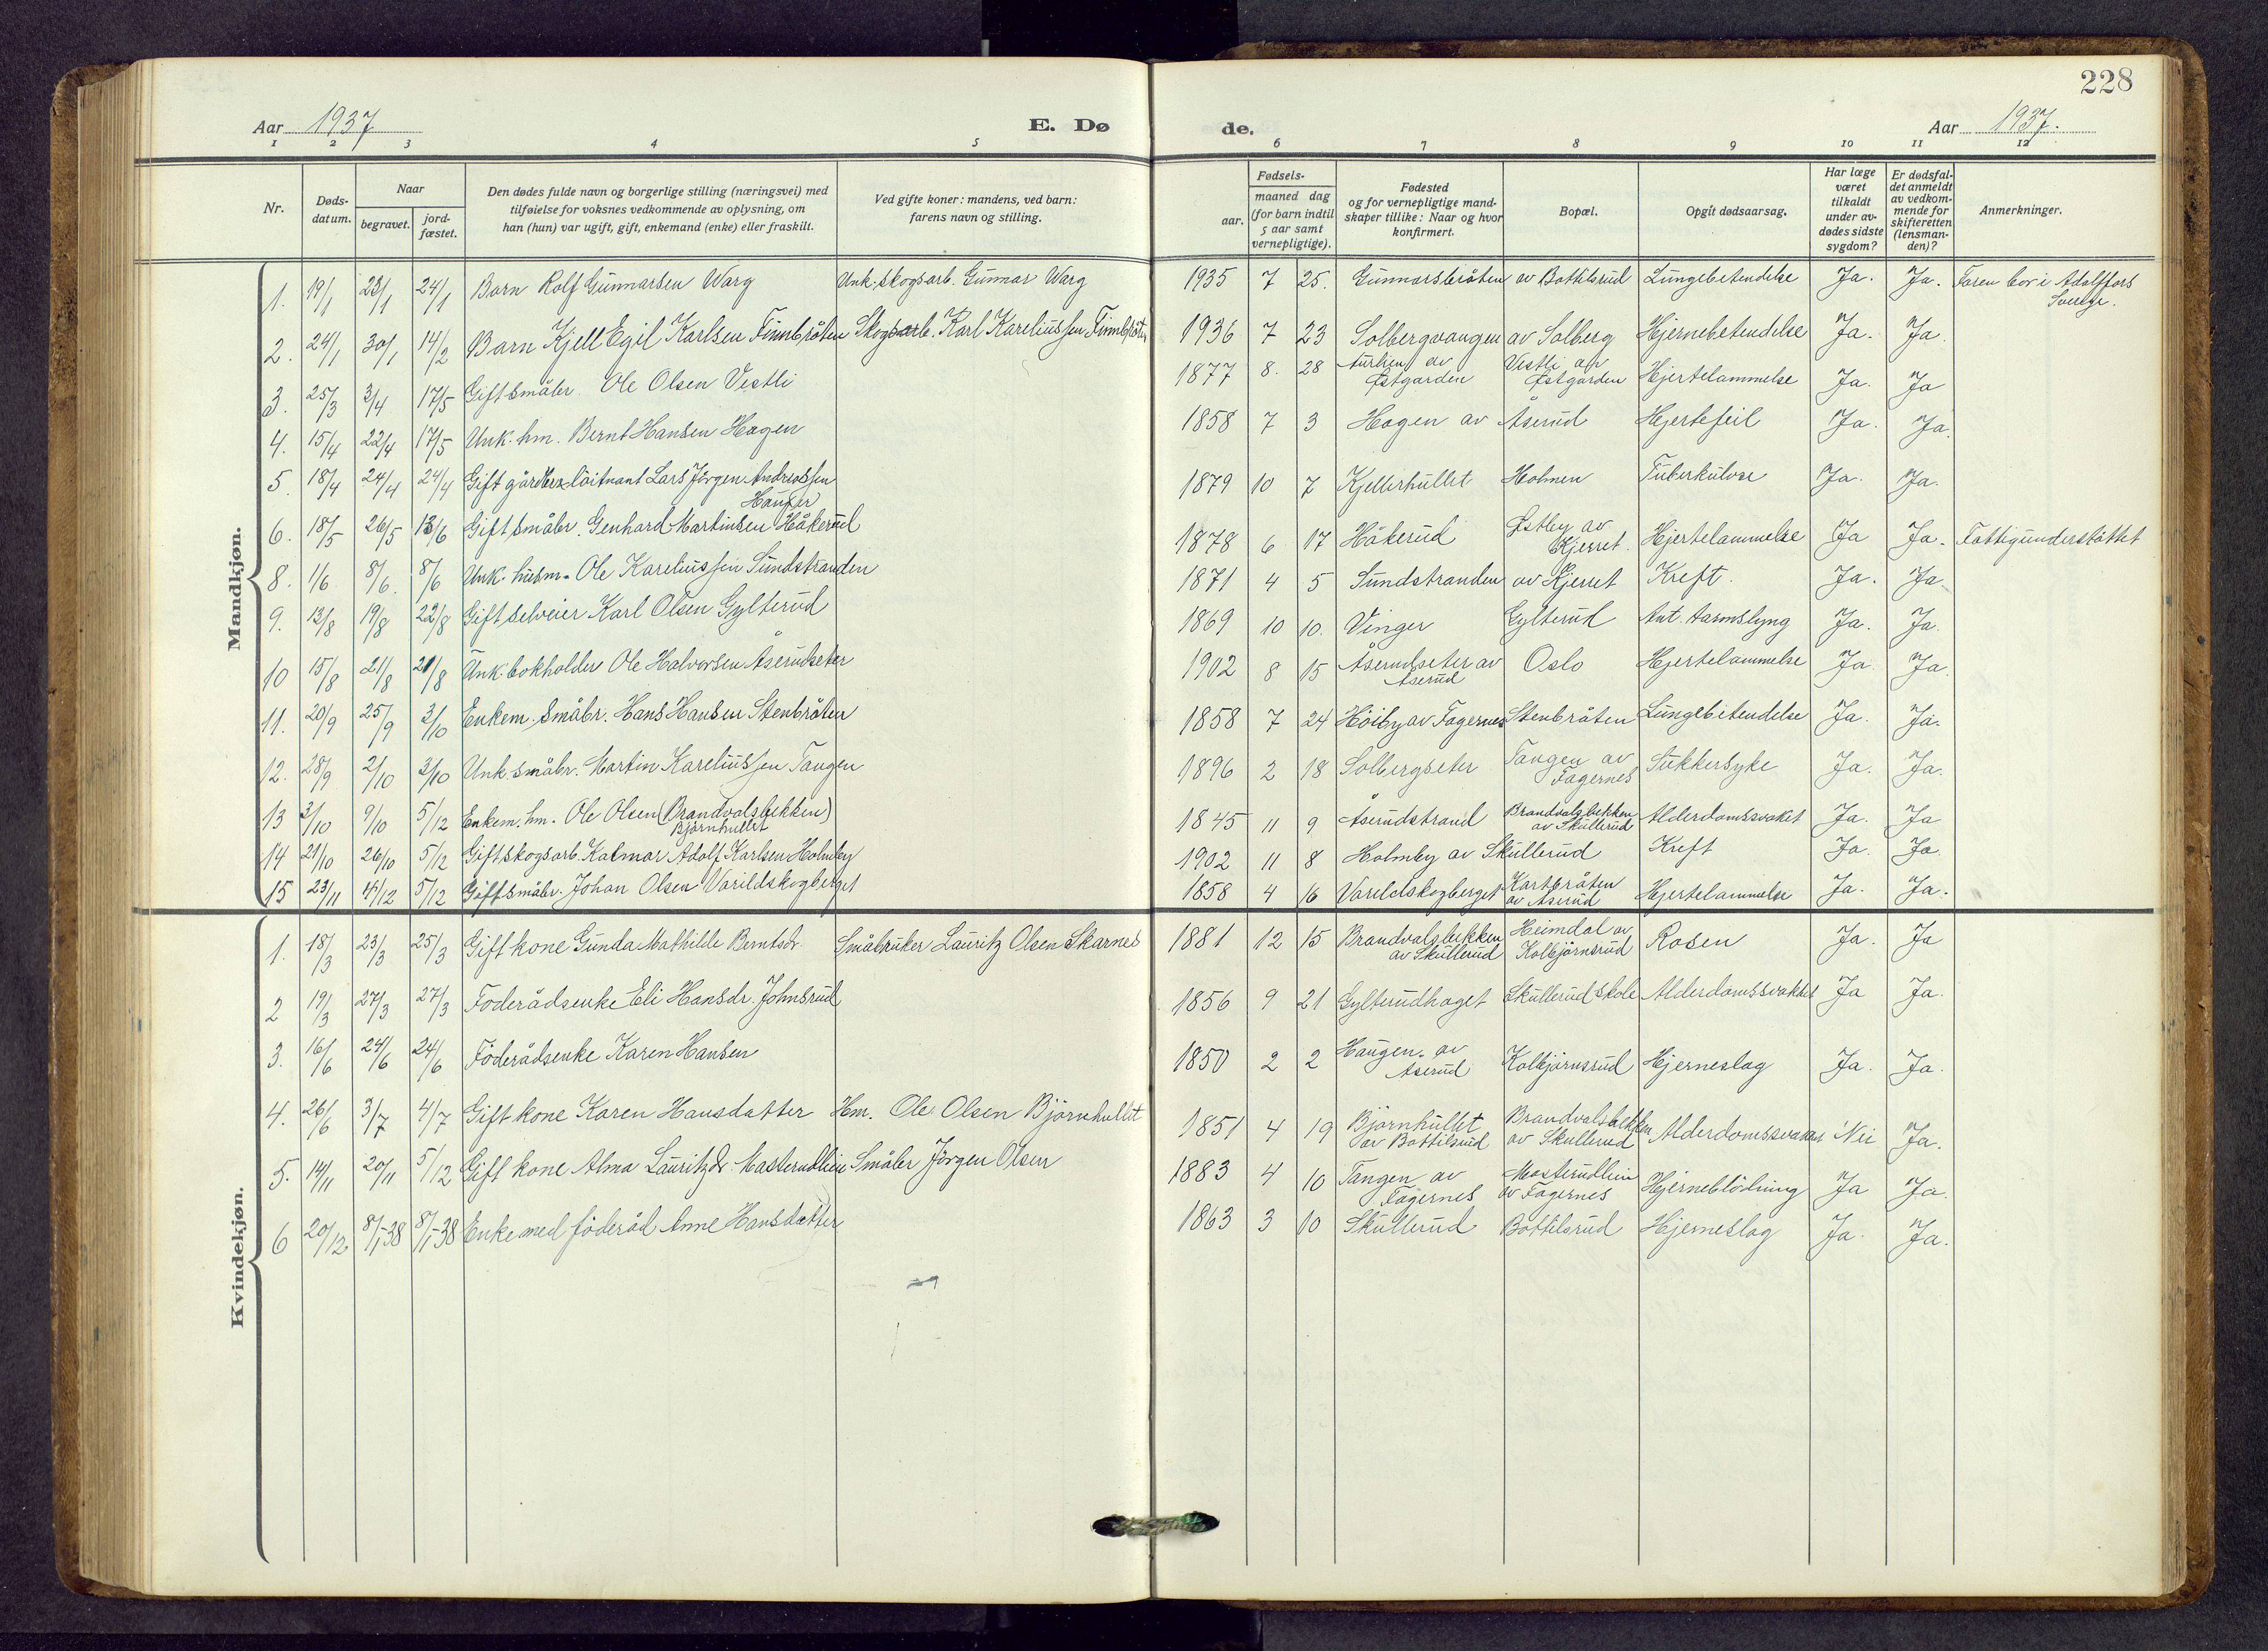 228
Aar 1937 E. Dø de. Aar 1937.
1 2 3 4 5 6 7 8 9 10 11 12
Nr.
Døds-
datum.
Naar
begravet.
jord-
fæstet.
Den dødes fulde navn og borgerlige stilling (næringsvei) med
tilføielse for voksnes vedkommende av oplysning, om
han (hun) var ugift, gift, enkemand (enke) eller fraskilt.
Ved gifte koner: mandens, ved barn:
farens navn og stilling.
Fødsels-
aar. maaned dag
(for barn indtil
5 aar samt
vernepligtige).
Fødested
og for vernepligtige mand-
skaper tillike: Naar og hvor
konfirmert.
Bopæl.
Opgit dødsaarsag.
Har læge
været
tilkaldt
under av-
dødes sidste
sygdom?
Er dødsfal-
det anmeldt
av vedkom-
mende for
skifteretten
(lensman-
den)?
Anmerkninger.
Mandkjøn.
1. 19/1 23/1 24/1 Barn Rolf Gunnarsen Warg Unk. skogsarb. Gunnar Warg 1935 7 25. Gunnarsbråten av Bottilsrud Lungebetendelse Ja. Ja. Faren bor i Adolffors
Sverge.
2. 24/1 30/1 14/2 Barn Kjell Egil Karlsen Finnbråten Skogsarb. Karl Kareliussen Finnbråten 1936 7 23 Solbergvangen av Solberg Hjernebetendelse Ja. Ja.
3. 25/3 3/4 17/5 Gift småbr. Ole Olsen Vestli 1877 8. 28 av Østgarden Vestli av Østgarden Hjertelammelse Ja. Ja
4. 15/4 22/4 17/5 Unk. hm. Bernt Hansen Hagen 1858 7 3 Hagen av Åserud Hjertefeil Ja. Ja.
5. 18/4 24/4 24/4 Gift løitnant Lars Jörgen Andreassen
Hauger 1879 10 7 Kjellerhullet Holmen Tuberkulose Ja. Ja.
6. 18/5 26/5 13/6 Gift småbr. Genhard Martinsen Håkerud 1878 6 17 Håkerud Østby av Kjerret. Hjertelammelse Ja Ja. Fattigunderstøttet
8. 1/6 8/6. 8/6 Unk. husm. Ole Kareliussen Sundstranden 1871 4 5 Sundstranden av Kjerret Kreft. Ja. Ja.
9. 13/8 19/8 22/8 Gift selveier Karl Olsen Gylterud 1869 10 10. Vinger Gylterud Ant. tarmslyng Ja. Ja.
10 15/8 21/8 21/8 Unk. bokholder Ole Halvorsen Åserudseter 1902 8 15 Åserudseter av Åserud Oslo Hjertelammelse Ja. Ja.
11. 20/9 25/9 3/10 Enkem. småbr. Hans Hansen Stenbråten 1858 7 24 Höiby av Fagernes Stenbråten Lungebetendelse Ja. Ja.
12. 28/9 2/10 3/10 Unk. småbr. Martin Kareliussen Tangen 1896 2 18 Solbergseter Tangen av Fagernes Sukkersyke Ja. Ja.
13 3/10 9/10 5/12 Enkem. hm. Ole Olsen (Brandvolsbekken)
Björnhullet 1845 11 9 Åserudstrand Brandvolsbekken av Skullerud Alderdomssvaket Ja. Ja
14 21/10 26/10 5/12 Gift skogsarb. Kalmar Adolf Karlsen Holmby 1902 11 8 Holmby av Skullerud Kreft Ja. Ja.
15 23/11 4/12 5/12 Gift småbr. Johan Olsen Varildskogberget 1858 4 16 Varildskogberget Kartbråten av Åserud Hjertelammelse Ja. Ja.
Kvindekjøn.
1. 18/3 23/3 25/3 Gift kone Gunda Mathilde Berntsdr. Småbruker Lauritz Olsen Skarnes 1881 12 15 Brandvalsbekken av Skullerud Heimdal av Kolbjörnsrud Rosen Ja. Ja
2 19/3 27/3 27/3 Foderådsenke Eli Hansdr. Johnsrud 1856 9 21 Gylterudhaget Skullerud skole Alderdomssvakket Ja Ja.
3. 16/6 24/6 24/6 Föderådsenke Karen Hansen 1850 2 2 Haugen av Åserud Kolbjörnsrud Hjerneslag Ja. Ja.
4. 26/6 3/7 4/7 Gift kone Karen Hansdatter Hm. Ole Olsen Björnhullet 1851 4 19 Björnhullet av Bottilsrud Brandvolsbekken av Skullerud Alderdomssvaket Nei Ja.
5. 14/11 20/11 5/12 Gift kone Alma Lauritzdr. Masterudlien Småbr Jörgen Olsen 1883 4 10 Tangen av Fagernes Masterudlien av Fagernes Hjerneblödning Ja Ja.
6 20/12 8/1-38 8/1-38 Enke med föderåd Anne Hansdatter 1863 3 10 Skullerud Bottilsrud Hjerneslag Ja. Ja.